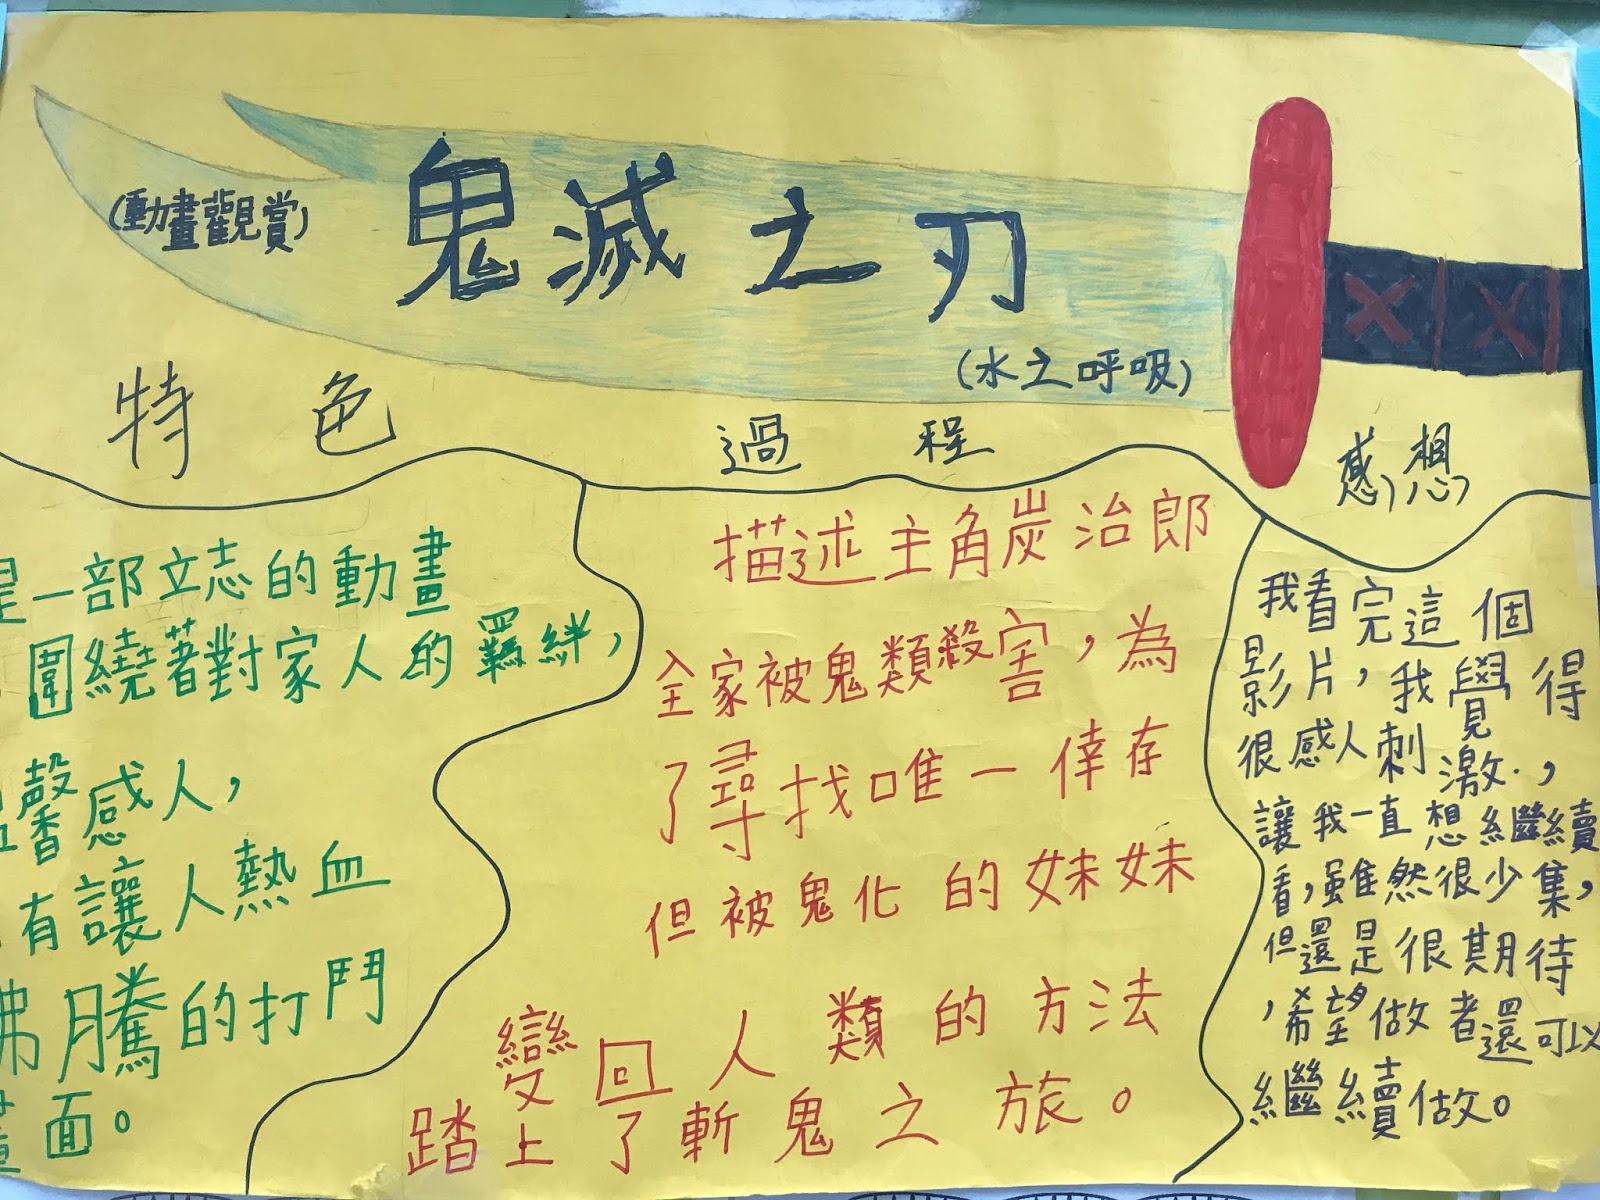 (動畫觀賞)
鬼滅之刃
(水之呼吸)
特色
是一部立志的動畫
圍繞著對家人的羈絆，
馨感人，
有讓人熱血
沸騰的打鬥
畫面。
過程
描述主角炭治郎
全家被鬼類殺害，為
了尋找唯一倖存
但被鬼化的妹妹
變回人類的方法
踏上了斬鬼之旅。
感想
我看完這個
影片，我覺得
很感人刺激，
讓我一直想繼續
看，雖然很少集，
但還是很期待
，希望做者還可以
繼續做。